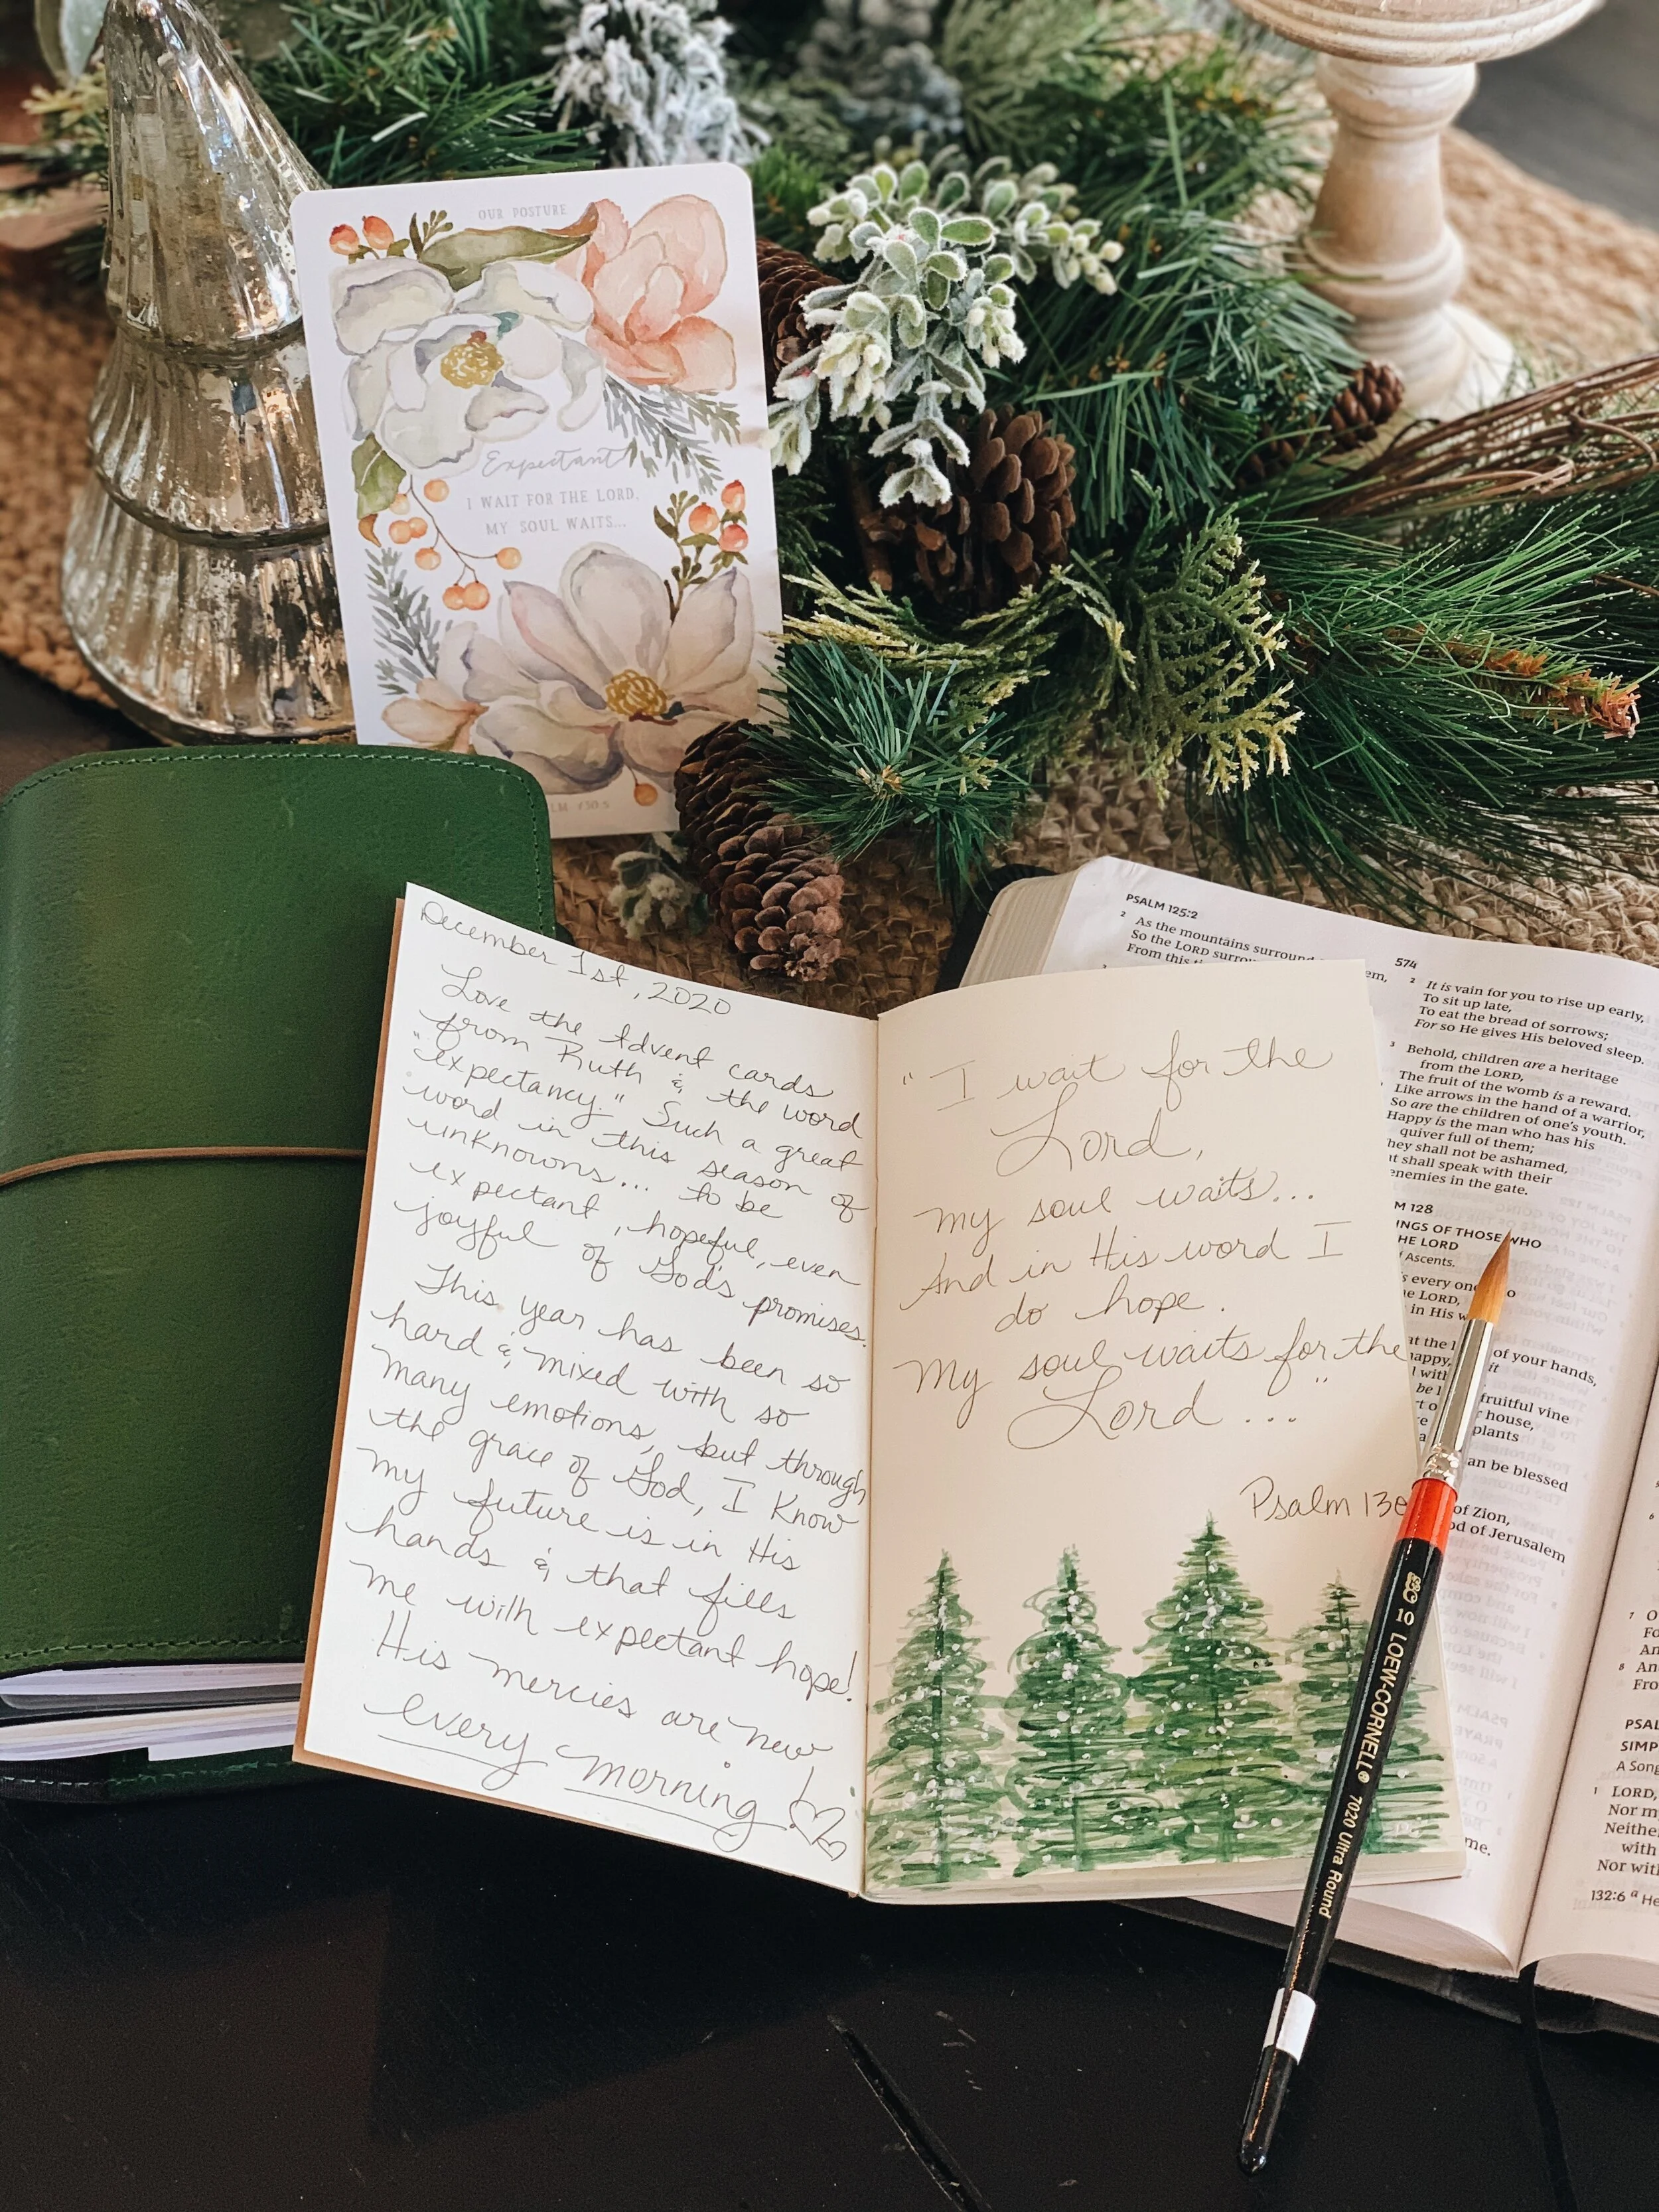 OUR POSTURE
Expectant
I WAIT FOR THE LORD,
MY SOUL WAITS...
December 1st, 2020
Love the Advent cards
from Ruth & the word
"expectancy." Such a great
word in this season of
unknowns... to be
expectant, hopeful, even
joyful of God's promises.
This year has been so
hard & mixed with so
many emotions, but through
the grace of God, I know
my future is in His
hands & that fills
me with expectant hope!
His mercies are new
every morning!
"I wait for the
Lord,
my soul waits...
And in His word I
do hope.
My soul waits for the
Lord..."
Psalm 130
PSALM 125:2
2 As the mountains surround
So the LORD
From this
574
2 It is vain for you to rise up early,
To sit up late,
To eat the bread of sorrows;
For so He gives His beloved sleep.
3 Behold, children are a heritage
from the LORD,
The fruit of the womb is a reward.
Like arrows in the hand of a warrior,
So are the children of one's youth.
Happy is the man who has his
quiver full of them;
hey shall not be ashamed,
t shall speak with their
enemies in the gate.
M 128
INGS OF THOSE WHO
HE LORD
Ascents.
s every one
he LORD,
in His
of your hands,
it
fruitful vine
house,
plants
an be blessed
of Zion,
od of Jerusalem
me.
7 O
Fo
An
8 An
Fro
PSAL
SIMP
A Song
1 LORD,
Nor m
Neithe
with
Nor wit
132:6 a He
10 LOEW-CORNELL 7020 Ultra Round